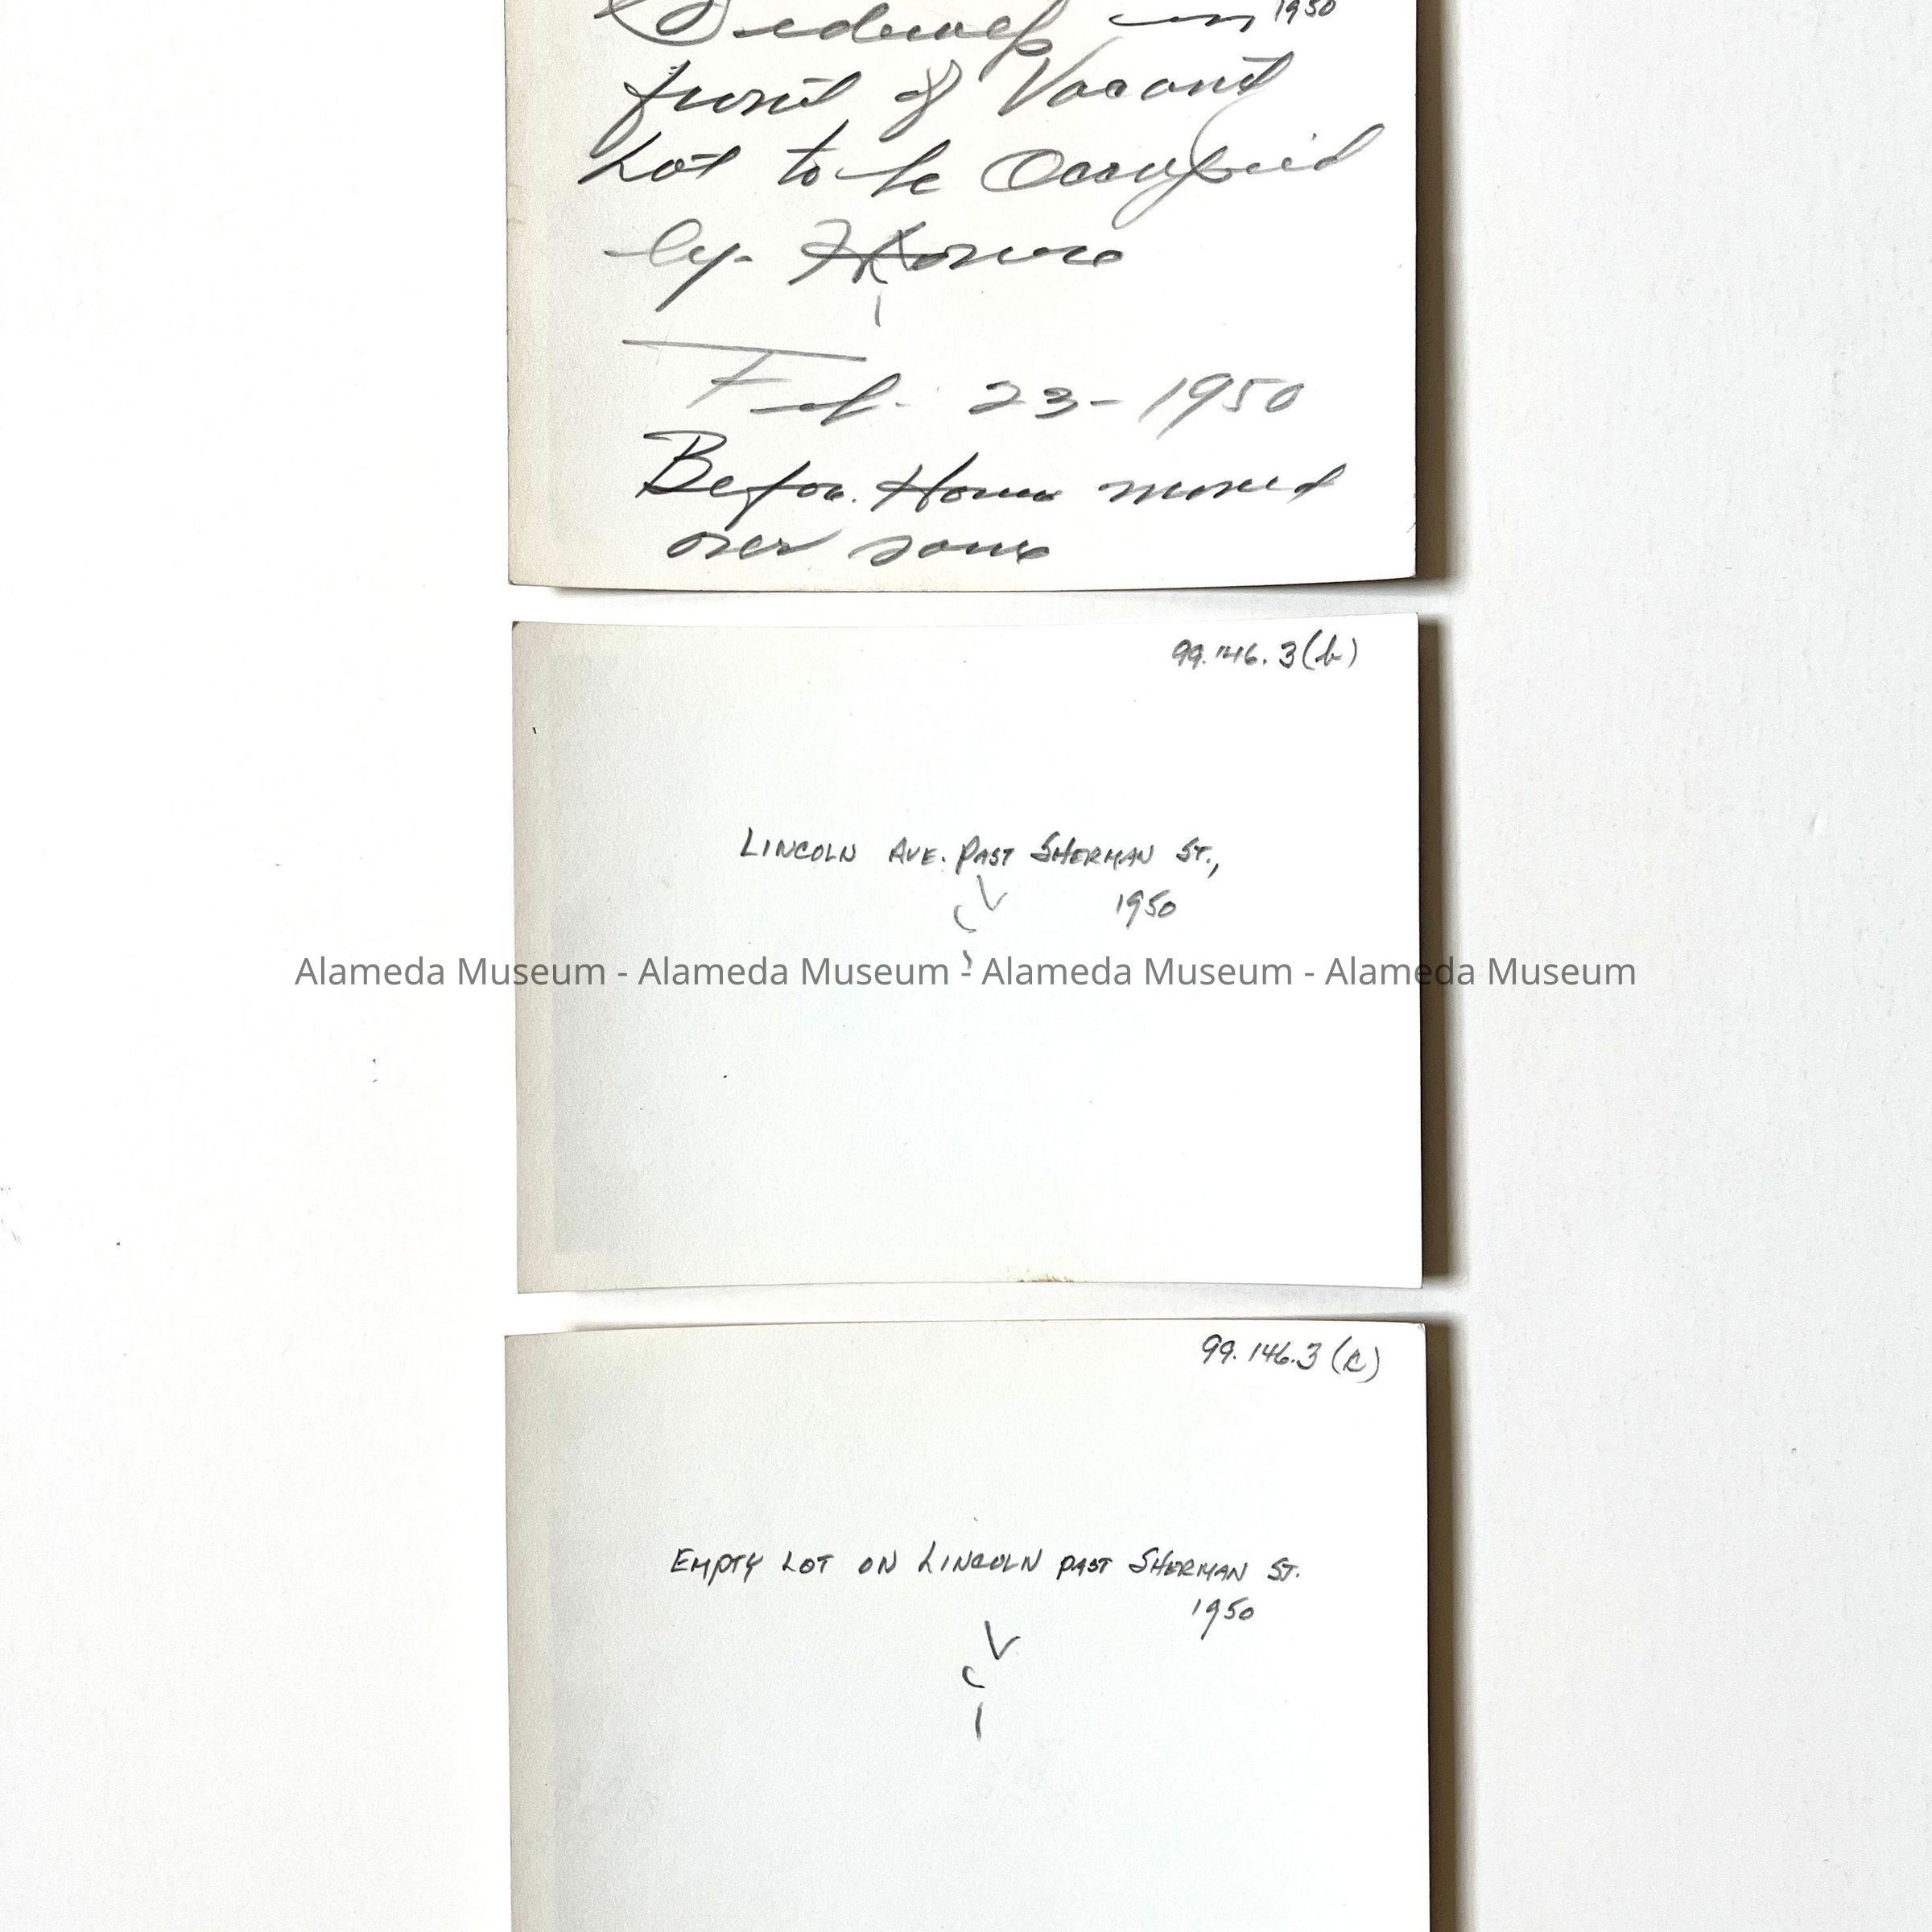 Sidewalk in 1950
front of Vacant
Lot to be Occupied
by- House
Feb. 23-1950
Before House moved
over same
99.146.3(b)
LINCOLN AVE. PAST SHERMAN ST.,
1950
Alameda Museum - Alameda Museum - Alameda Museum - Alameda Museum
99.146.3(c)
EMPTY LOT ON LINCOLN PAST SHERMAN ST.
1950